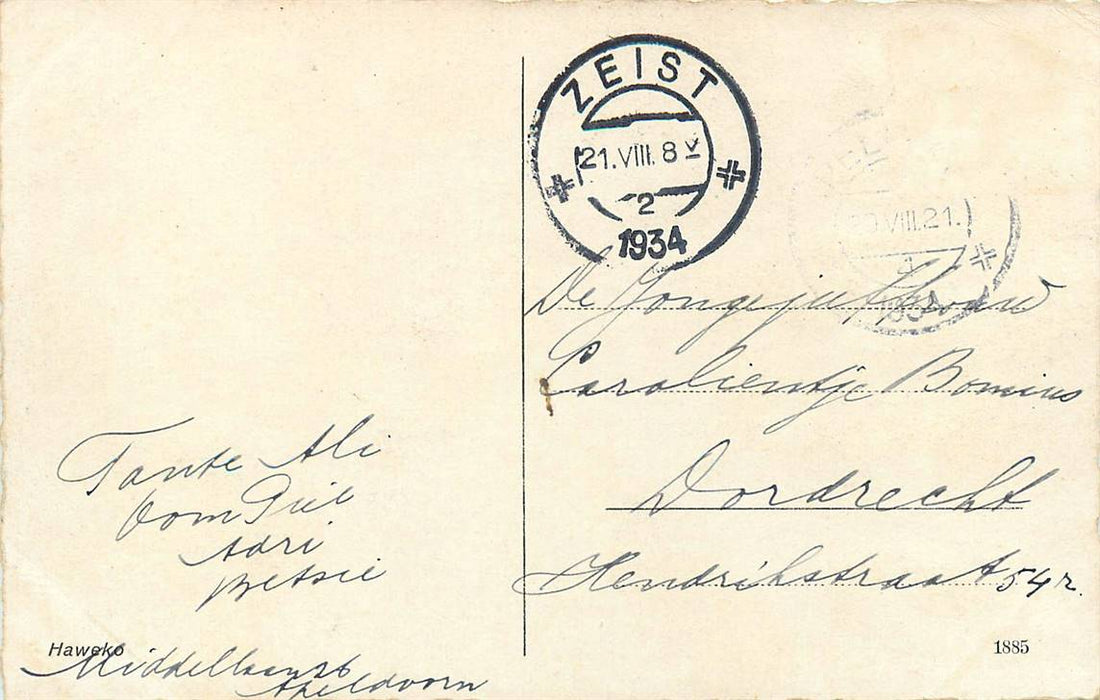 ZEIST
21.VIII.8 V
2
1934
VIII.21.
4
De Jongejuffrouw
Carolientje Bomius
Dordrecht
Hendrikstraat 54r.
Tante Ali
Oom Piet
Adri
Betsie
Haweko
Apeldoorn
1885